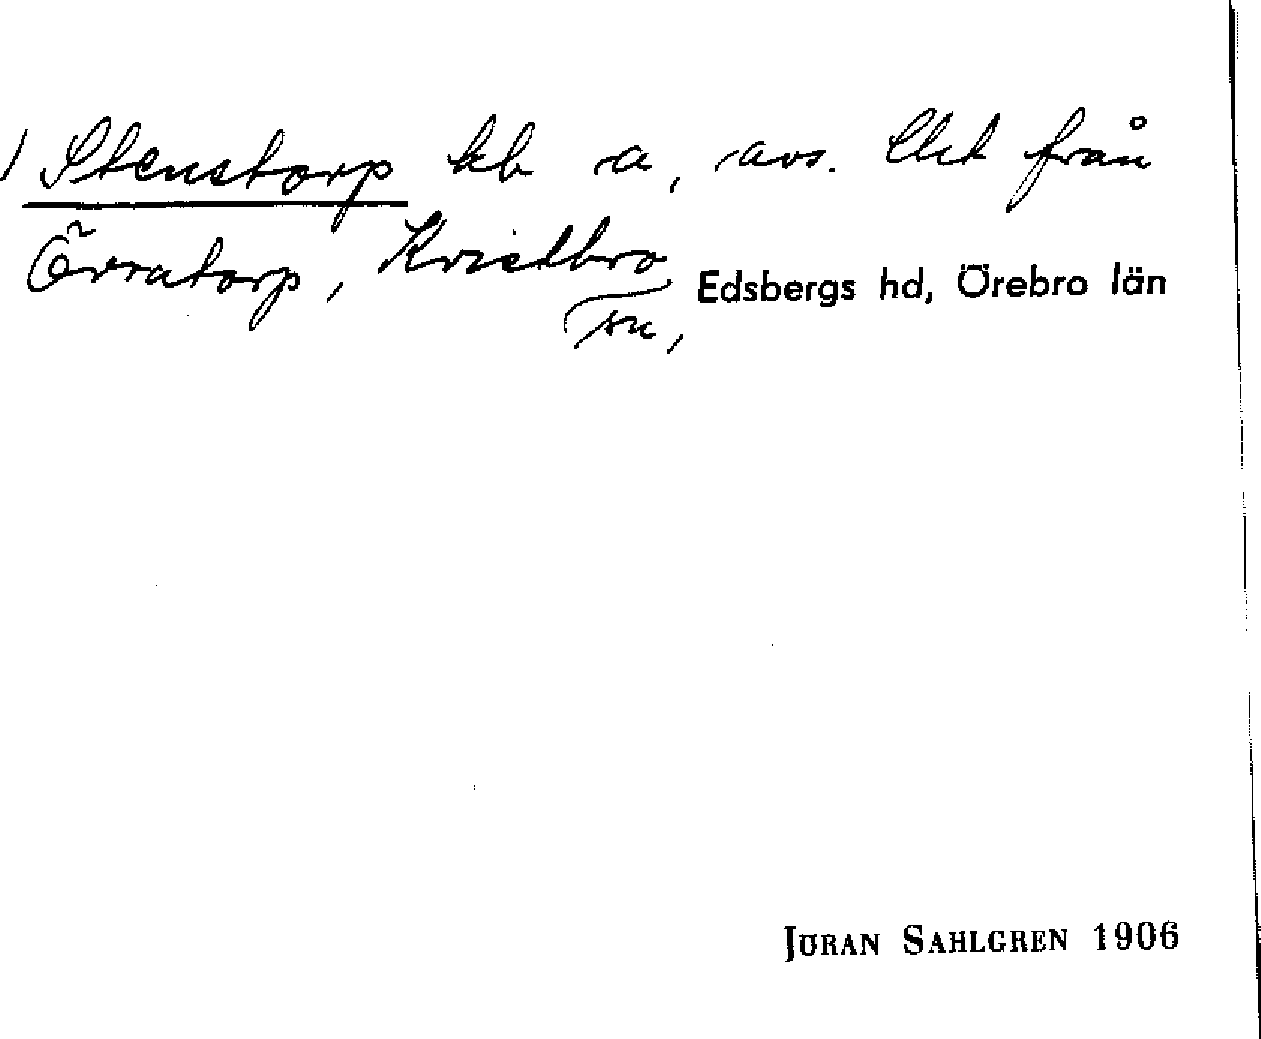 ) Stenstorp hb a, avs. Utk från
Örratorp, Kvistbro
sn, Edsbergs hd, Örebro län
JÖRAN SAHLGREN 1906